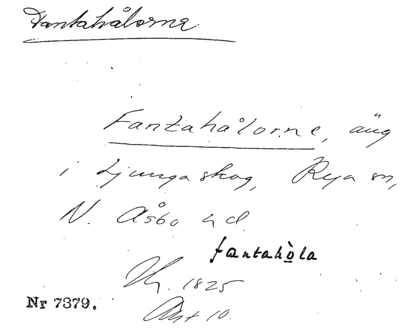 Fantahålorne
Fantahålorne, äng
i Ljungaskog, Rya sn,
N. Åsbo hd.
fantahòla
1825
Nr 7379.
Akt 10.